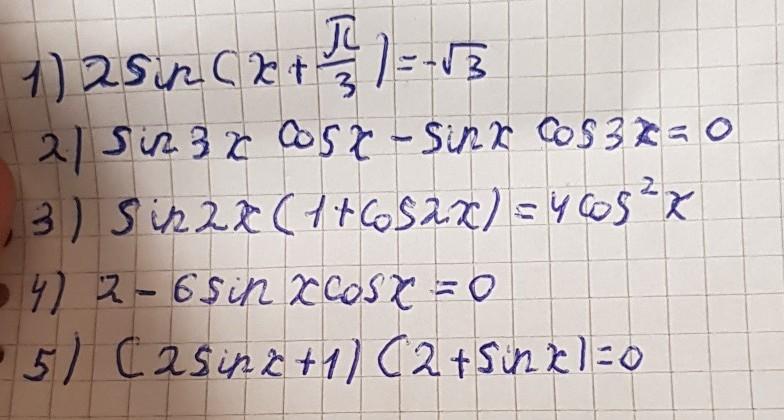 1) 2sin(x+π/3)=-√3
2) sin3x cosx-sinx cos3x=0
3) sin2x(1+cos2x)=4cos²x
4) 2-6sinxcosx=0
5) (2sinx+1)(2+sinx)=0